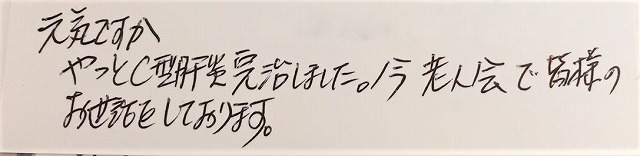 元気ですか
やっとC型肝炎完治しました。今老人会で皆様の
お世話をしております。